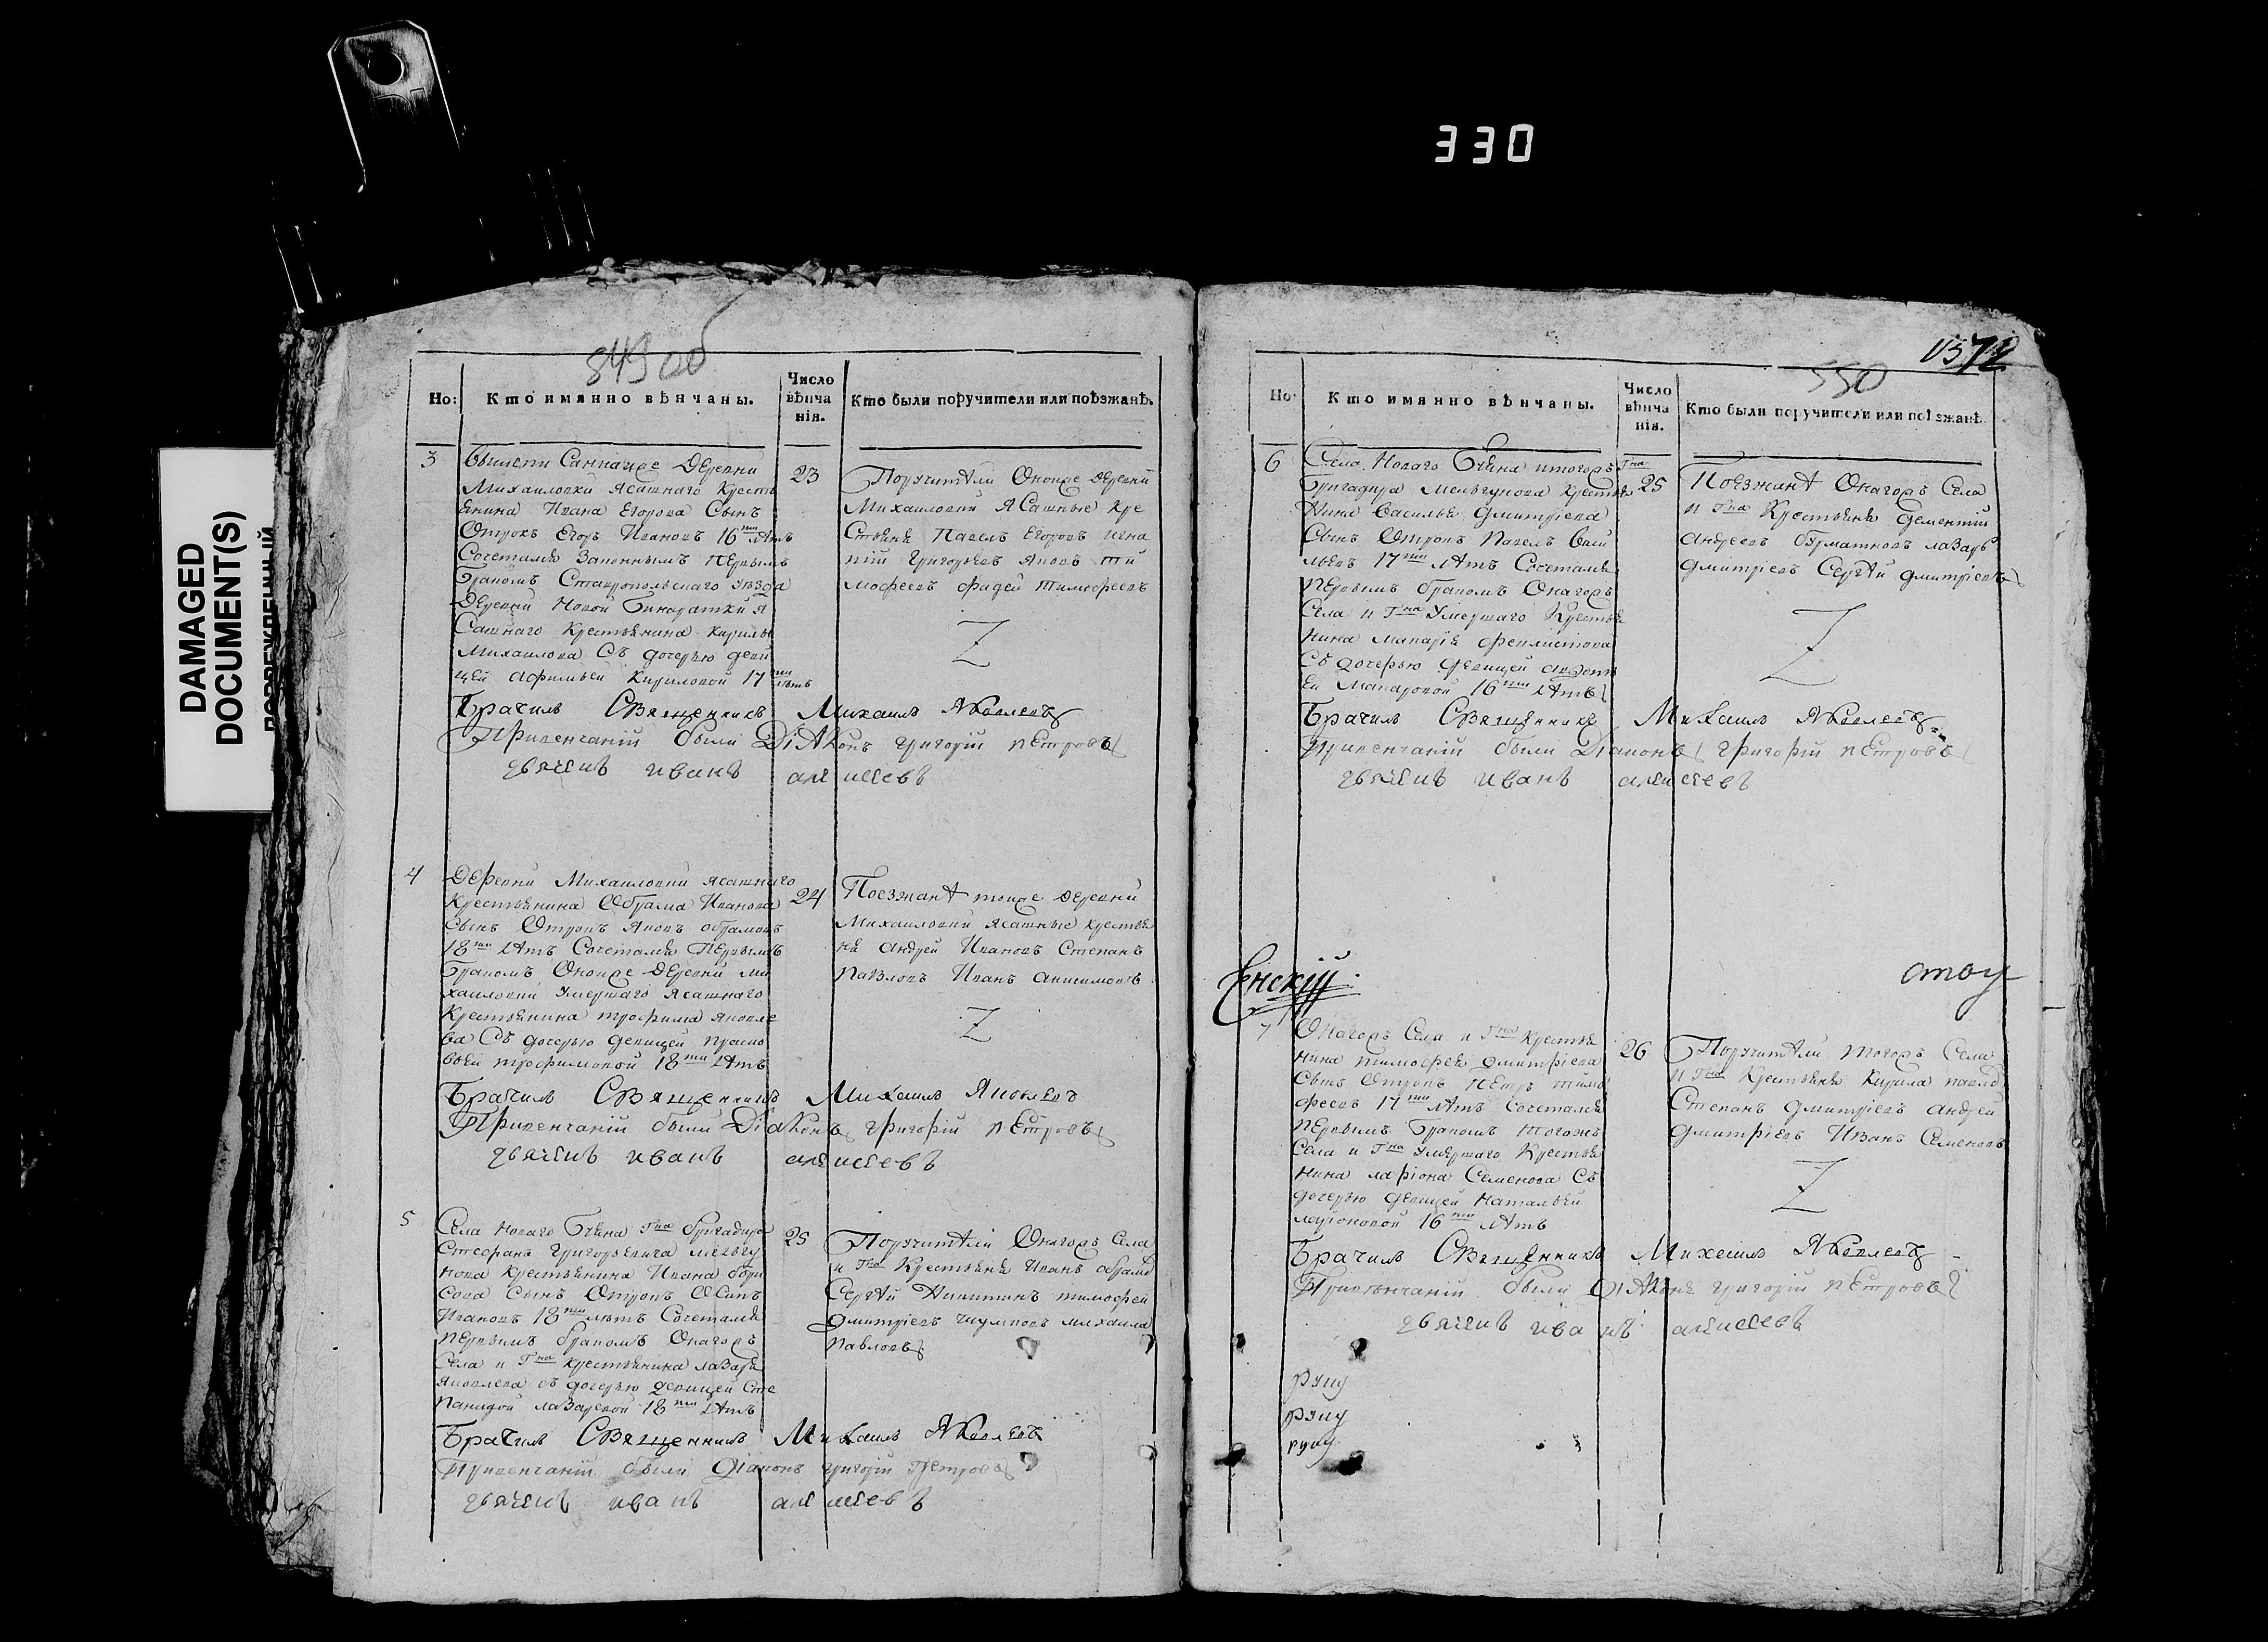 330
DAMAGED
DOCUMENT(S)
849 об
Но:
Кто имянно вѣнчаны.
Число
вѣнча
нія.
Кто были поручители или поѣзжанѣ.
3
Михаиловки ясашнаго Кресть
янина Ивана Егорова Сынъ
Отрокъ Егоръ Ивановъ 16ти лѣтъ
Сочетался Законнымъ первымъ
бракомъ Ставропольскаго уѣзда
Деревни Новой Бинарятки я
Сашнаго Крестьянина Кирилы
Михаилова Съ дочерью деви
цей Афимьей Кириловой 17ти лѣтъ
23
Поручители Оноиже деревни
Михаиловки ясашные кре
стьяня Павелъ Егоровъ игна
тій Григорьевъ Яковъ ти
мофеевъ фадей тимофеевъ
Брачилъ Священникъ Михаилъ Яковлевъ
Привенчаніи были Діаконъ григорій петровъ
дьячекъ иванъ алексеевъ
4
Деревни Михаиловки ясашнаго
Крестьянина Абрама Иванова
Сынъ Отрокъ Яковъ абрамовъ
18ти лѣтъ Сочетался первымъ
бракомъ Оноиже Деревни Ми
хаиловки Умершаго ясашнаго
Крестьянина трофима яковле
ва Съ дочерью девицей праско
вьей трофимовой 18ти лѣтъ
24
Поезжанѣ тоиже деревни
Михаиловки ясашные крестья
ня андрей Ивановъ Степанъ
павловъ Иванъ анисимовъ
Брачилъ Священникъ Михаилъ Яковлевъ
Привенчаніи были Діаконъ григорій петровъ
дьячекъ иванъ алексеевъ
5
Села Новаго Бчяна Гна бригадира
Стефана григорьевича мельгу
нова крестьянина Ивана бори
сова Сынъ Отрокъ Осипъ
Ивановъ 18ти лѣтъ Сочетался
первымъ бракомъ Оногожъ
Села и Гна крестьянина лазаря
яковлева съ дочерью девицей Сте
панидой лазаревой 18ти лѣтъ
25
Поручители Оногожъ Села
и Гна Крестьяня Иванъ абрамо
Сергѣй Никитинъ тимофей
дмитріевъ михаила
павловъ
Брачилъ Священникъ Михаилъ Яковлевъ
Привенчаніи были Діаконъ григорій петровъ
дьячекъ иванъ алексеевъ
550
Но:
Кто имянно вѣнчаны.
Число
вѣнча
нія.
Кто были поручители или поѣзжанѣ.
6
Села Новаго Бчяна итогожъ Гна
бригадира Мельгунова крестья
нина Василья дмитріева
Сынъ Отрокъ Павелъ Васи
льевъ 17ти лѣтъ Сочетался
первымъ бракомъ Оногожъ
Села и Гна Умершаго Крестья
нина макарія феклистова
Съ дочерью девицей авдоть
ей Макаровой 16ти лѣтъ
25
Поезжанѣ Оногожъ Села
и Гна Крестьяня дементій
андреевъ лазарь
дмитріевъ Сергѣй дмитріевъ
Брачилъ Священникъ Михаилъ Яковлевъ
Привенчаніи были Діаконъ григорій петровъ
дьячекъ иванъ алексеевъ
7
Оногожъ Села и Гна Крестья
нина тимофея дмитріева
Сынъ Отрокъ петръ тимо
феевъ 17ти лѣтъ Сочетался
первымъ бракомъ тогожъ
Села и Гна Умершаго Крестья
нина ларіона Семенова Съ
дочерью девицей Натальей
ларіоновой 16ти лѣтъ
26
Поручители тогожъ Села
и Гна Крестьяня Кирила павло
Степанъ дмитріевъ андрей
дмитріевъ Иванъ Семеновъ
Брачилъ Священникъ Михаилъ Яковлевъ
Привѣнчаніи были Діаконъ григорій петровъ
дьячекъ иванъ алексеевъ
руку
руку
руку